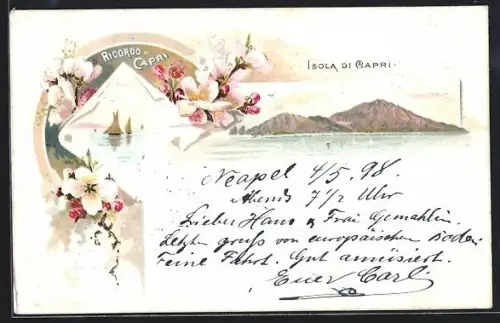 RICORDO DI
CAPRI
ISOLA DI CAPRI.
Neapel 4/5. 98.
Abends 7 1/2 Uhr
Lieber Hans & Frau Gemahlin.
Letzten gruss von europäischen Boden
Feine Fahrt. Gut amüsiert.
Euer Carl